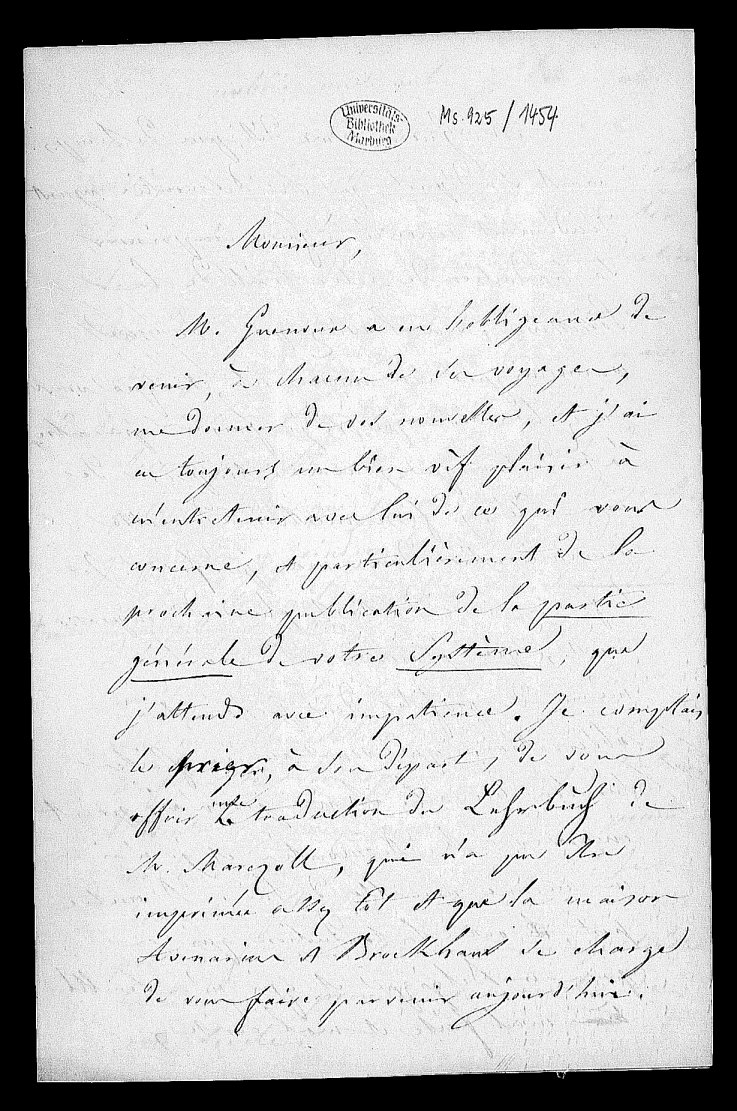 Universitäts-
Bibliothek
Marburg
Ms. 925 / 1454
Monsieur,
M. Guenoux a eu l'obligeance de
venir, à chacun de ses voyages,
me donner de vos nouvelles, et j'ai
eu toujours un bien vif plaisir à
m'entretenir avec lui de ce qui vous
concerne, et particulièrement de la
prochaine publication de la partie
générale de votre Système, que
j'attends avec impatience. Je comptais
le prier, à son départ, de vous
offrir une traduction du Lehrbuch de
M. Marezoll, qui n'a pu être
imprimée assez tôt et que la maison
Avenarius et Brockhaus se charge
de vous faire parvenir aujourd'hui.